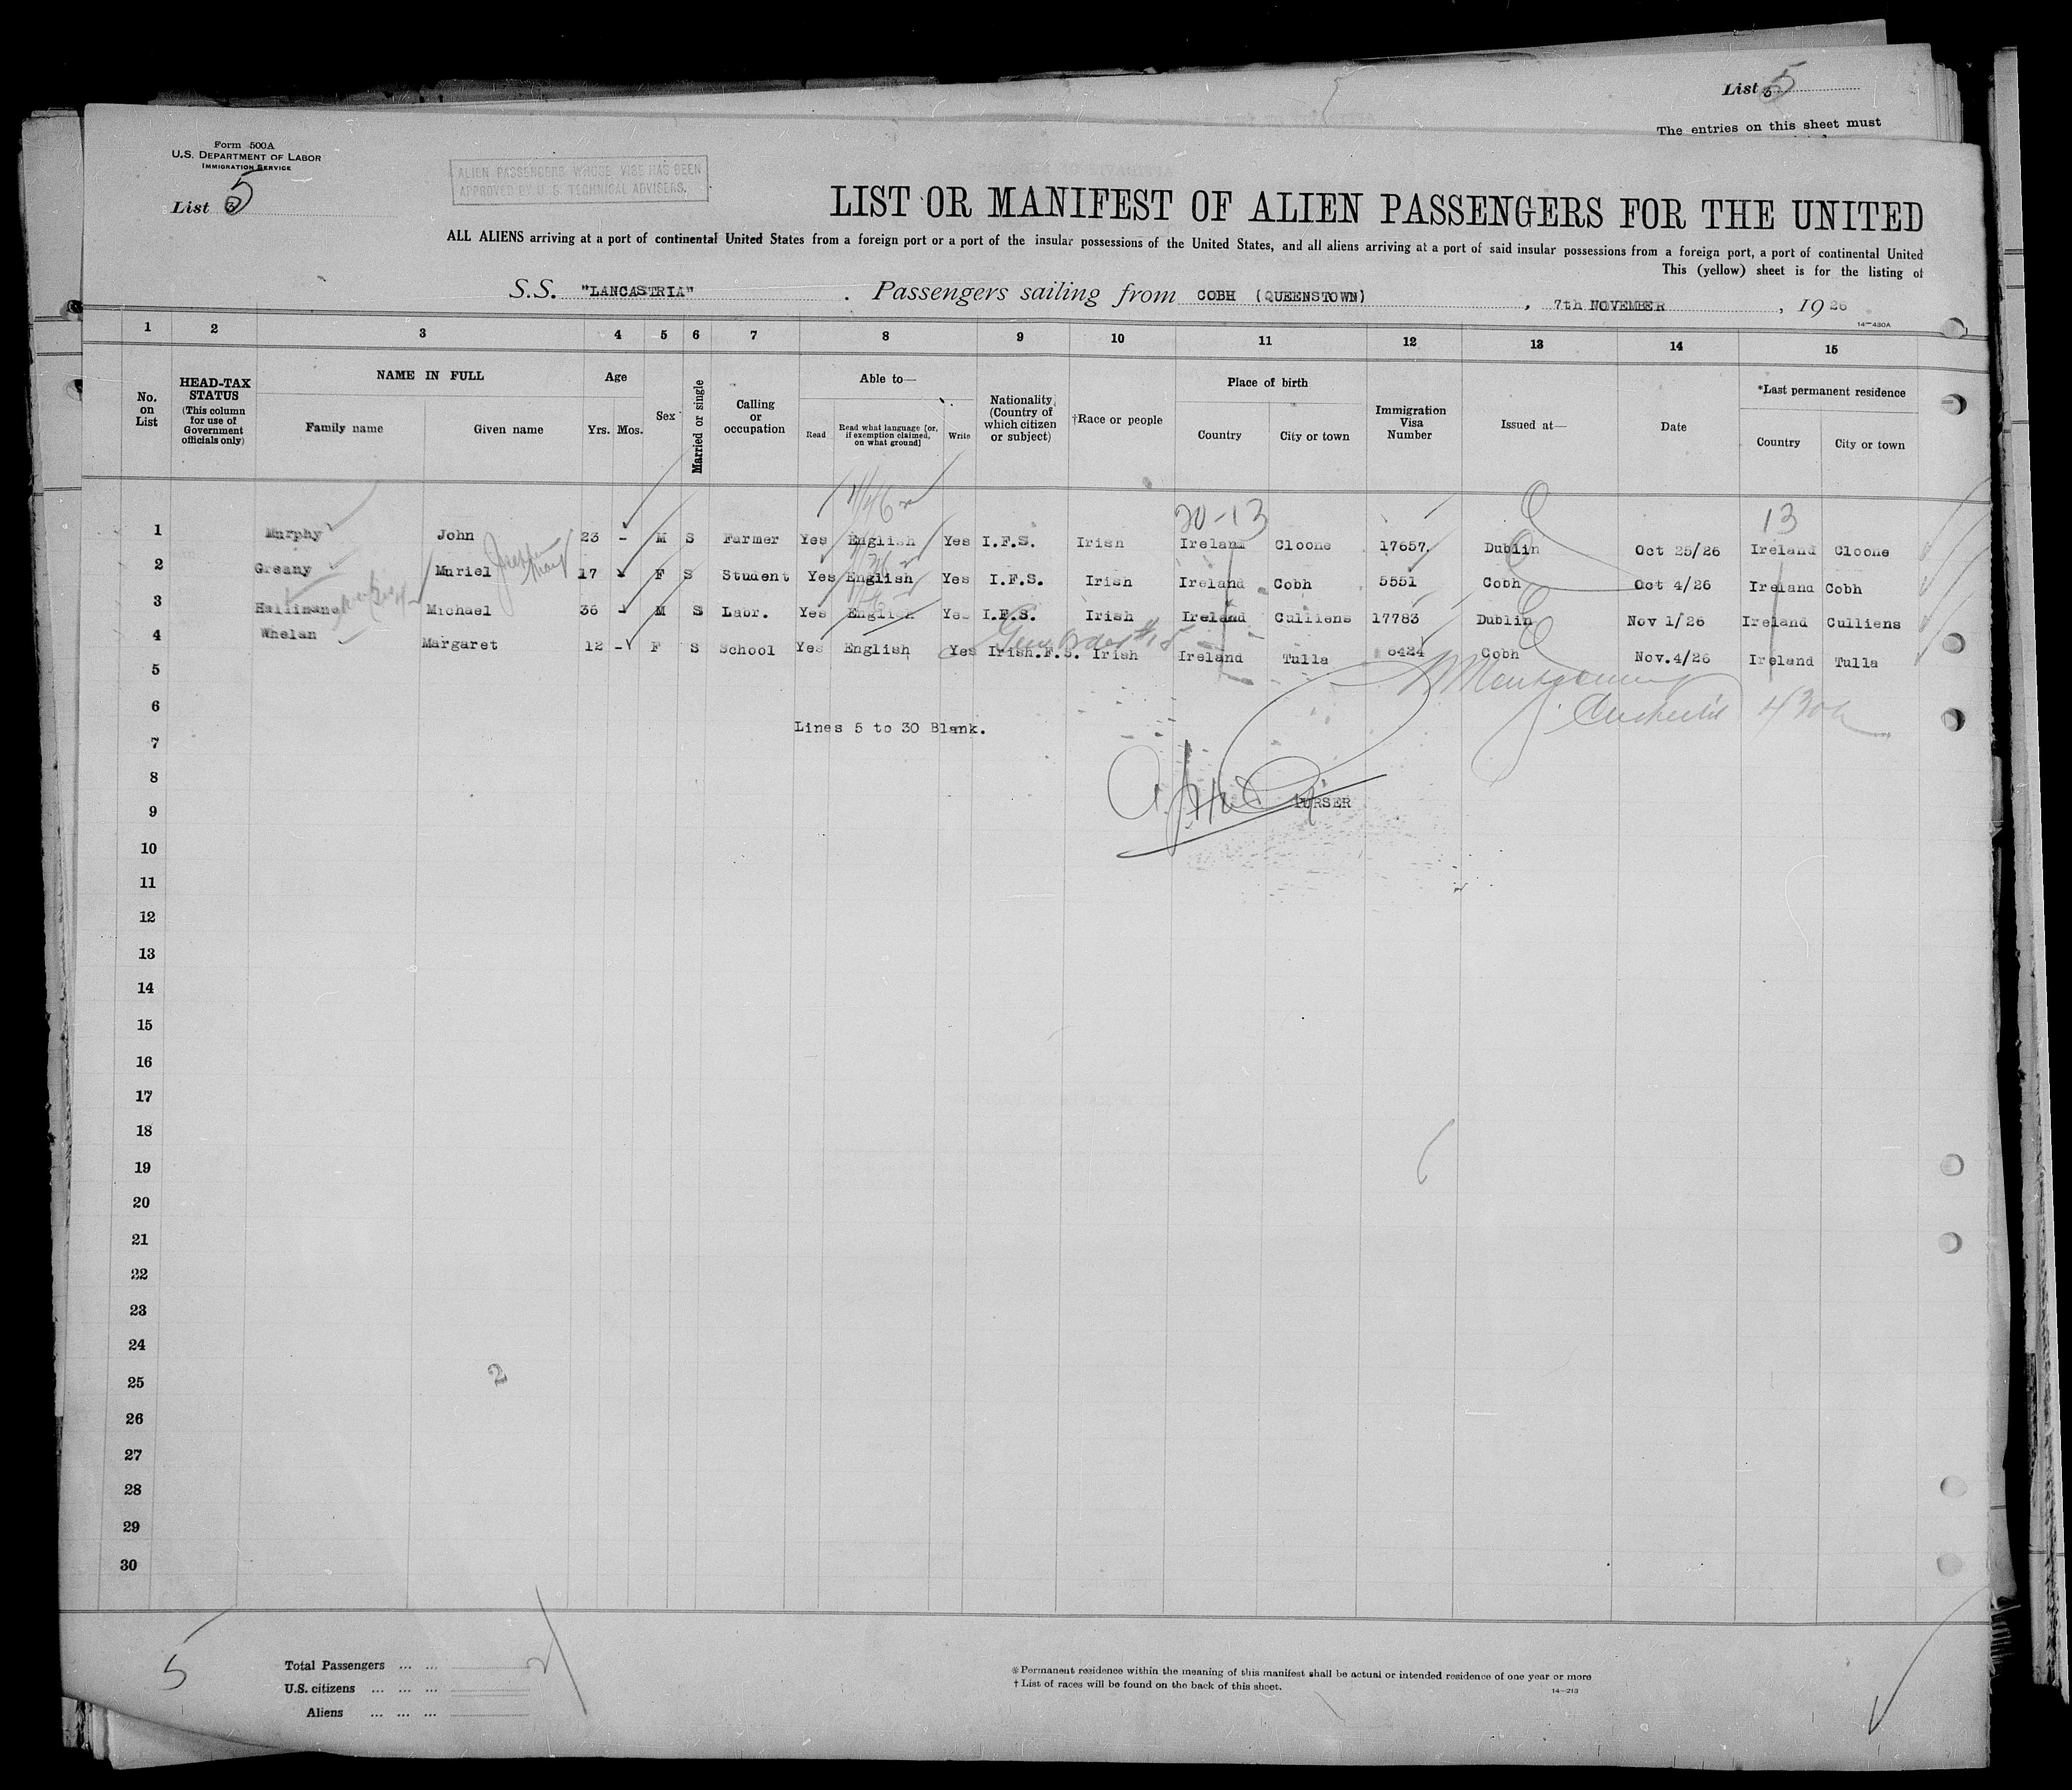 List 5
The entries on this sheet must
Form 500A
U.S. DEPARTMENT OF LABOR
IMMIGRATION SERVICE
List 5
ALIEN PASSENGERS WHOSE VISE HAS BEEN
APPROVED BY U. S. TECHNICAL ADVISERS.
LIST OR MANIFEST OF ALIEN PASSENGERS FOR THE UNITED
ALL ALIENS arriving at a port of continental United States from a foreign port or a port of the insular possessions of the United States, and all aliens arriving at a port of said insular possessions from a foreign port, a port of continental United
This (yellow) sheet is for the listing of
S.S. "LANCASTRIA" . Passengers sailing from COBH (QUEENSTOWN) , 7th NOVEMBER , 1926
14—430A
1 2 3 4 5 6 7 8 9 10 11 12 13 14 15
No. on List
HEAD-TAX STATUS (This column for use of Government officials only)
NAME IN FULL
Family name Given name
Age
Yrs. Mos.
Sex
Married or single
Calling or occupation
Able to—
Read Read what language [or, if exemption claimed, on what ground] Write
Nationality (Country of which citizen or subject)
†Race or people
Place of birth
Country City or town
Immigration Visa Number
Issued at—
Date
*Last permanent residence
Country City or town
20-13 13
1 Murphy John 23 - M S Farmer Yes English Yes I.F.S. Irish Ireland Cloone 17657. Dublin Oct 25/26 Ireland Cloone
2 Greany Muriel 17 - F S Student Yes English Yes I.F.S. Irish Ireland Cobh 5551 Cobh Oct 4/26 Ireland Cobh
3 Hallinane Michael 36 - M S Labr. Yes English Yes I.F.S. Irish Ireland Culliens 17783 Dublin Nov 1/26 Ireland Culliens
4 Whelan Margaret 12 - F S School Yes English Yes Irish.F.S. Irish Ireland Tulla 6424 Cobh Nov.4/26 Ireland Tulla
5
6
Lines 5 to 30 Blank.
7
8
PURSER
9
10
11
12
13
14
15
16
17
18
19
20
21
22
23
24
2
25
26
27
28
29
30
5
Total Passengers ... ...
U.S. citizens ... ... ...
Aliens ... ... ...
*Permanent residence within the meaning of this manifest shall be actual or intended residence of one year or more
† List of races will be found on the back of this sheet.
14—213